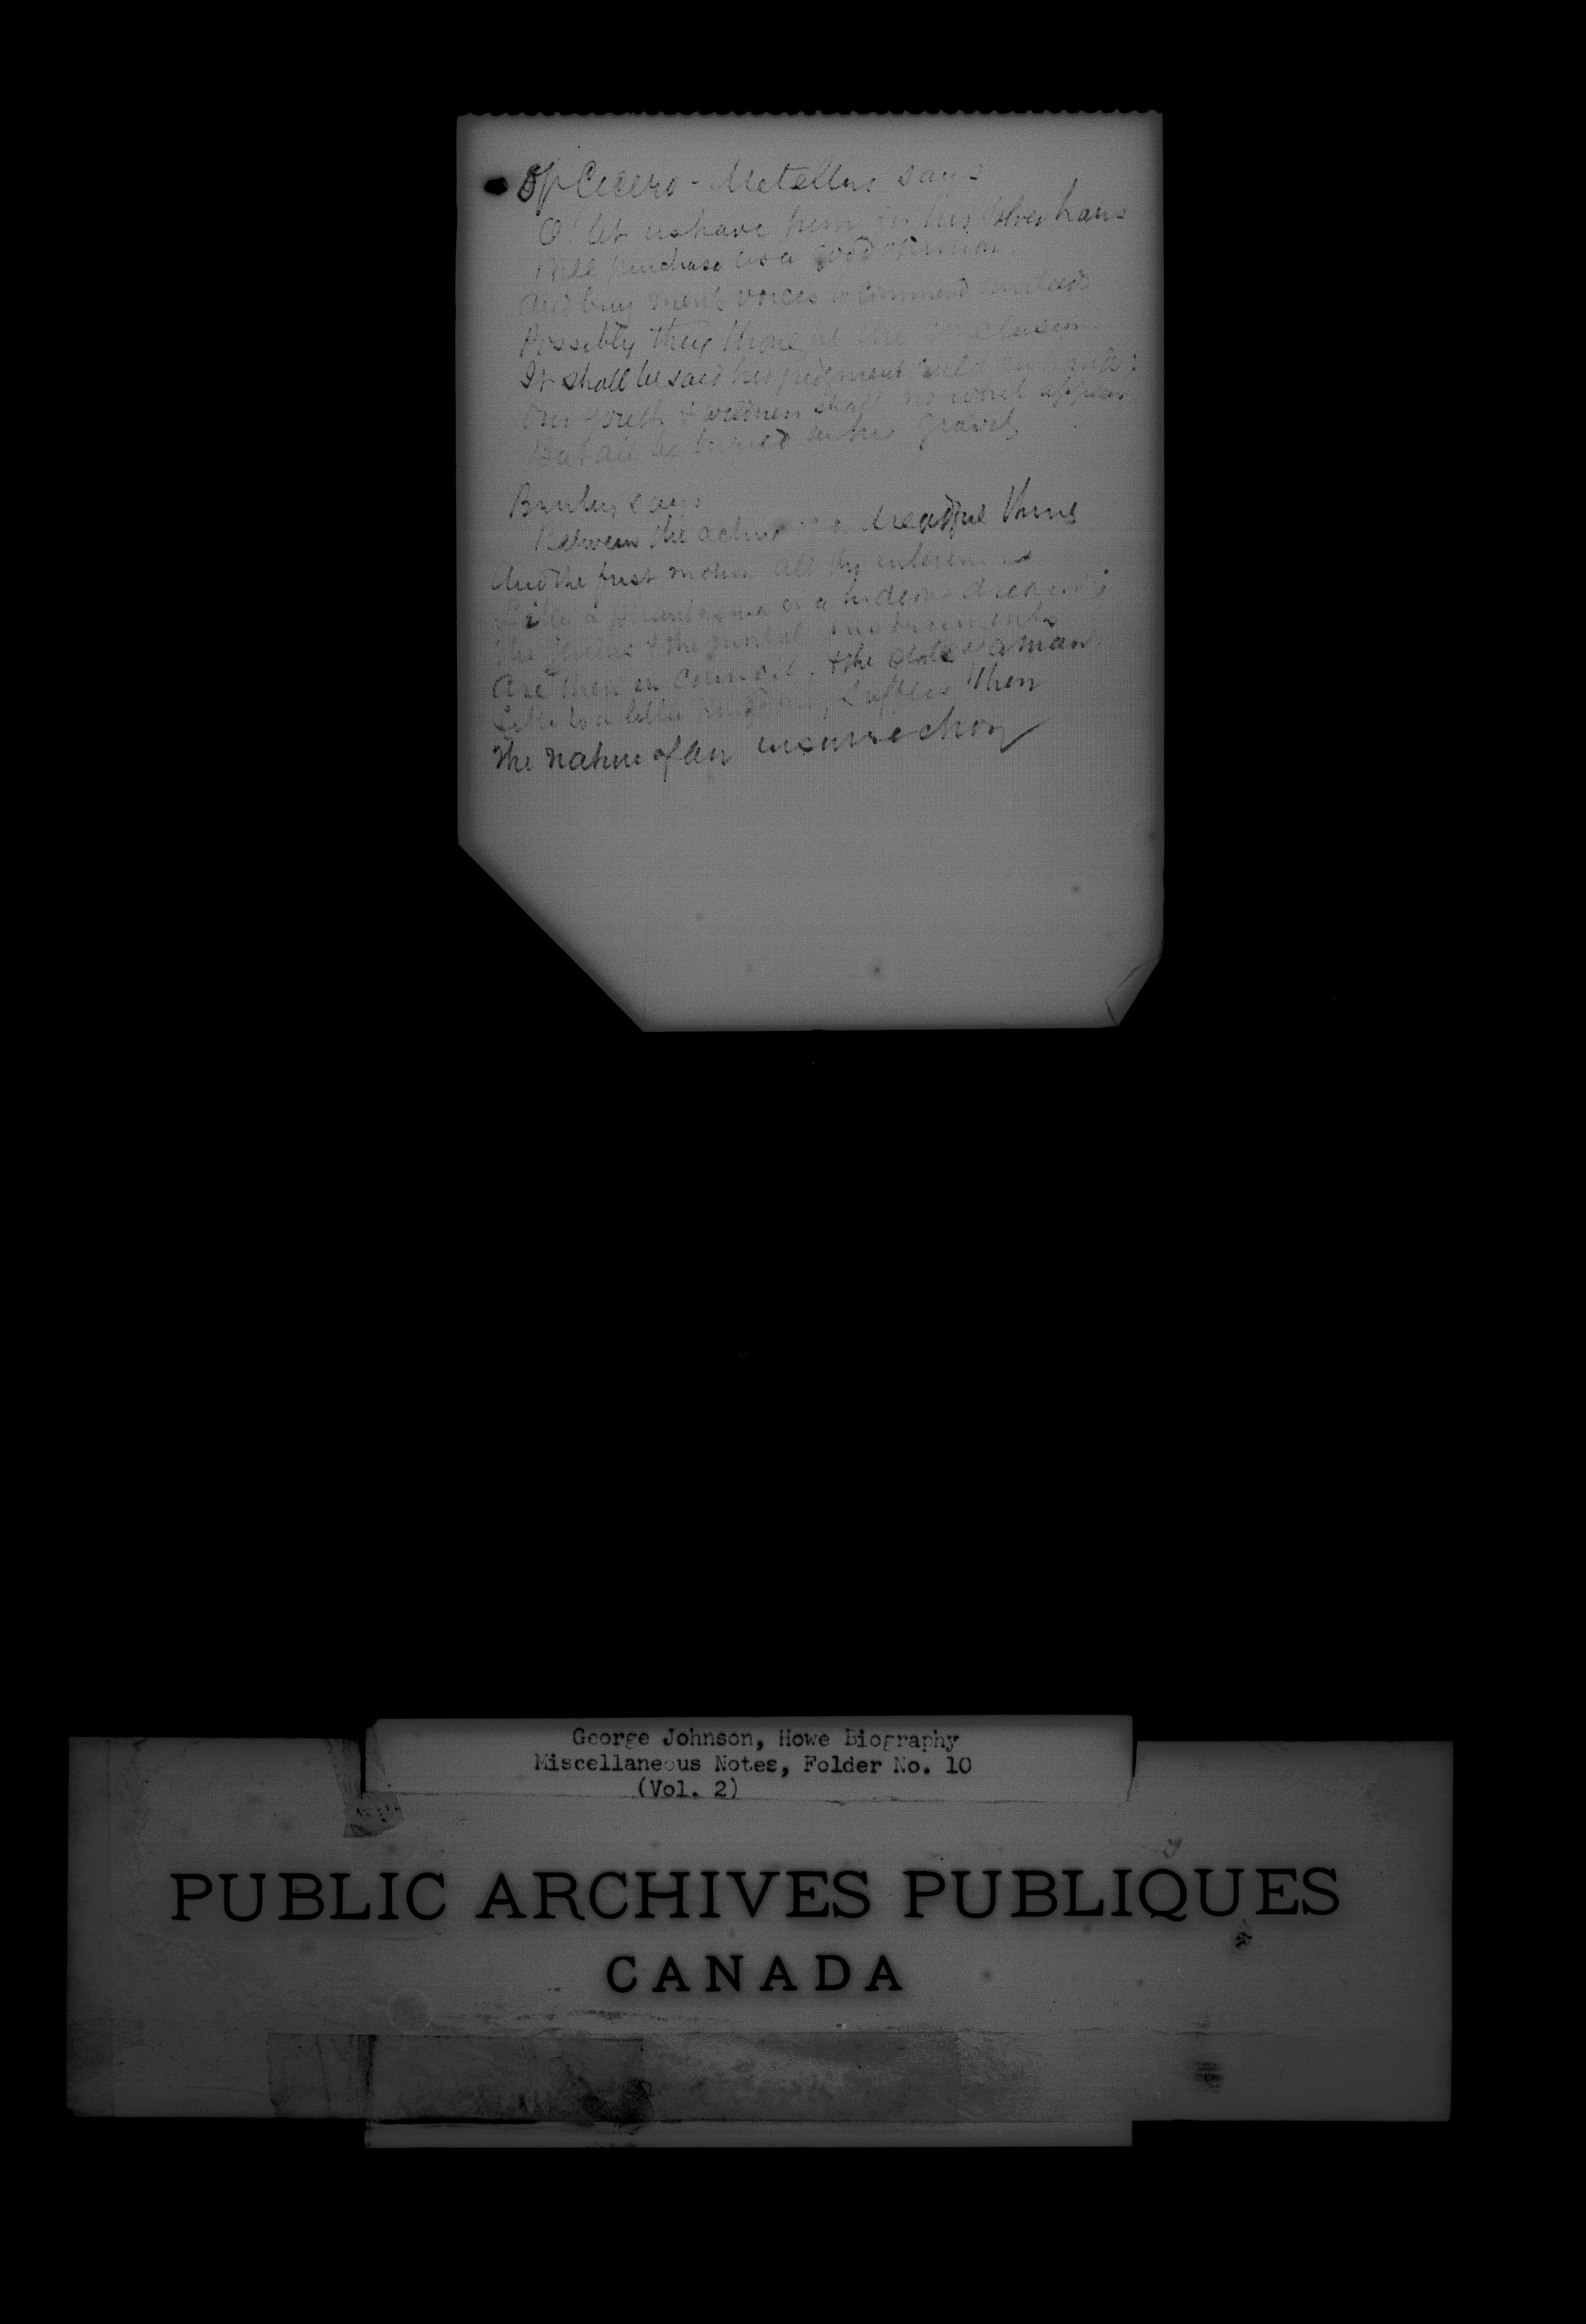 Of Cicero - Metellus says
O! let us have him for his silver hairs
Will purchase us a good opinion.
And buy men's voices to commend our deeds
Possibly they thought the conclusion
It shall be said his judgment ruled our hands:
Our youth & wildness shall no whit appear
But all be buried in his gravity
Brutus says
Between the acting of a dreadful thing
And the first motion all the interim is
Like a phantasma or a hideous dream;
The genius & the mortal instruments
Are then in Council; & the state of a man,
Like to a little kingdom, suffers then
The nature of an insurrection
George Johnson, Howe Biography
Miscellaneous Notes, Folder No. 10
(Vol. 2)
PUBLIC ARCHIVES PUBLIQUES
CANADA